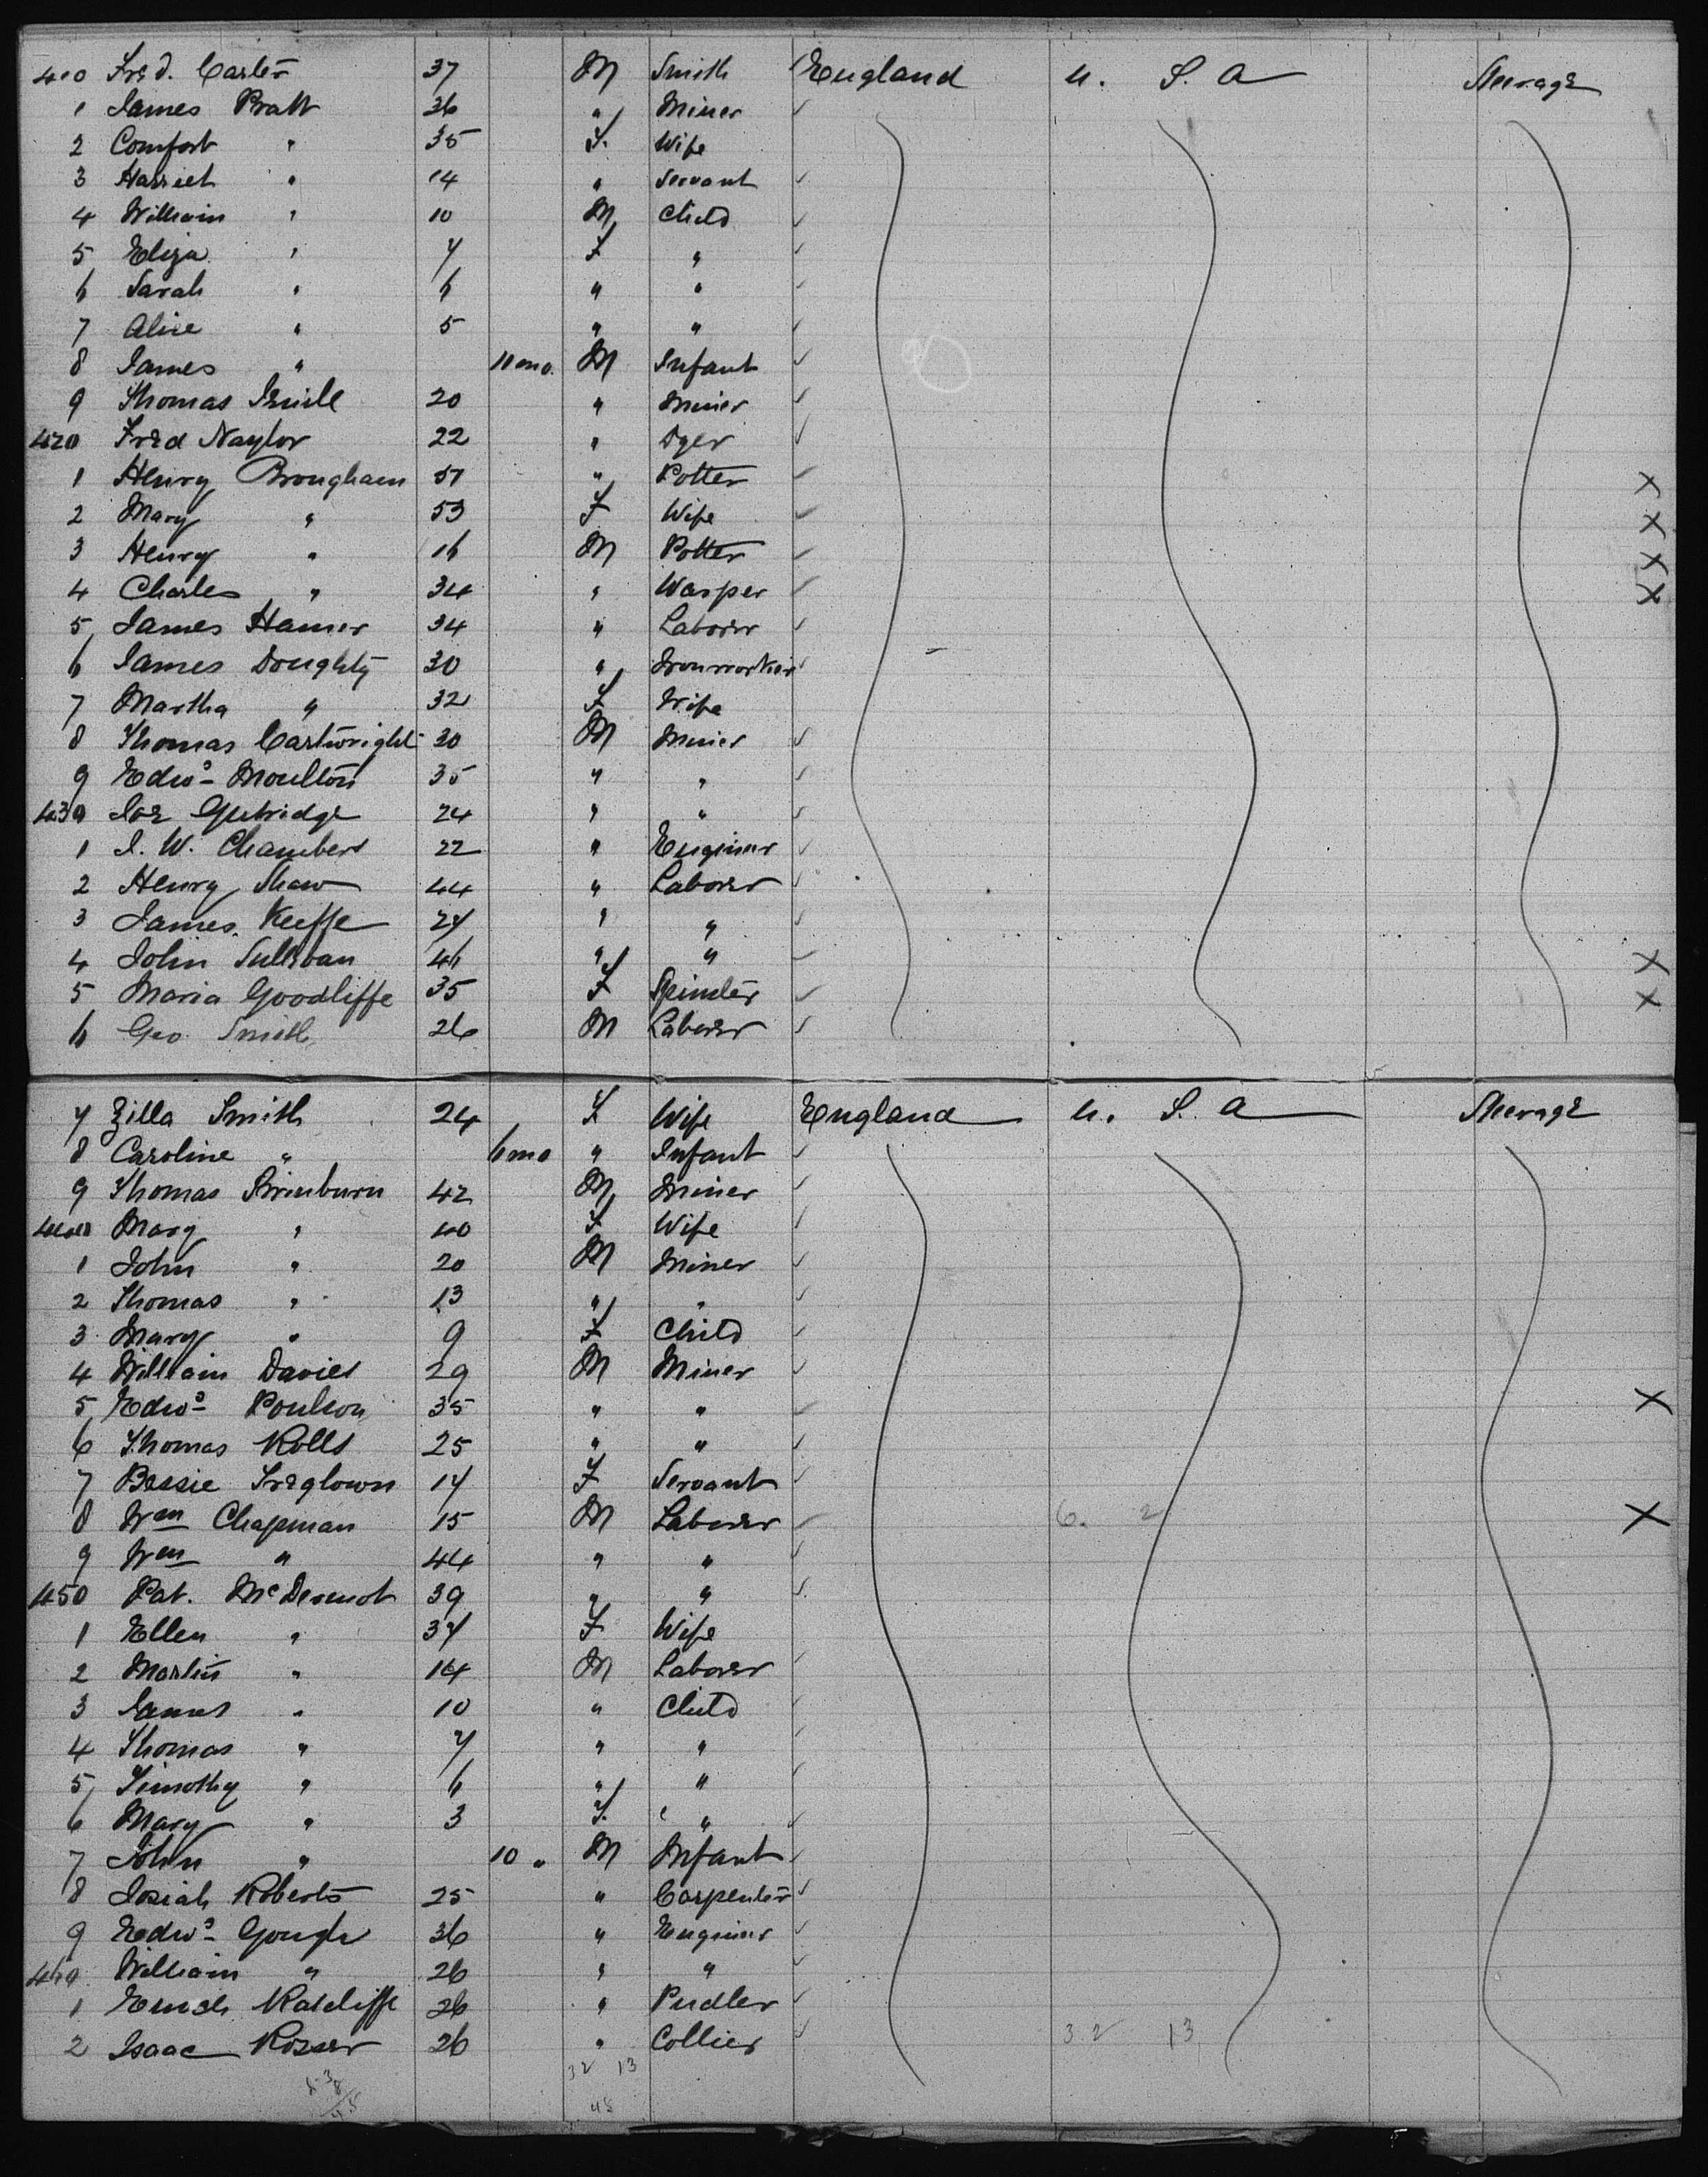 410 Fred. Carter 37 M Smith England U. S. A Steerage
1 James Pratt 36 " Miner
2 Comfort " 35 F. Wife
3 Harriet " 14 " Servant
4 William " 10 M Child
5 Eliza " 7 F "
6 Sarah " 6 " "
7 Alice " 5 " "
8 James " 11 mo. M Infant
9 Thomas 20 " Miner
420 Fred Naylor 22 " Dyer
1 Henry Brougham 51 " Potter X
2 Mary " 53 F Wife X
3 Henry " 16 M Potter X
4 Charles " 34 " Warper X
5 James Hamer 34 " Laborer
6 James Doughty 30 " Ironworker
7 Martha " 32 F Wife
8 Thomas Cartwright 30 M Miner
9 Edwd Moulton 35 " "
430 Joe Gutridge 24 " "
1 J. W. Chambers 22 " Engineer
2 Henry Shaw 44 " Laborer
3 James Keeffe 27 " "
4 John Sullivan 46 " " X
5 Maria Goodliffe 35 F Spinster X
6 Geo Smith 26 M Laborer
7 Zilla Smith 24 F Wife England U. S. A Steerage
8 Caroline " 6 mo " Infant
9 Thomas 42 M Miner
440 Mary " 40 F Wife
1 John " 20 M Miner
2 Thomas " 13 " "
3 Mary " 9 F Child
4 William Davies 29 M Miner
5 Edwd Poulson 35 " " X
6 Thomas Rolls 25 " "
7 Bessie Treglown 17 F Servant
8 Wm Chapman 15 M Laborer 6. 2 X
9 Wm " 44 " "
450 Pat. McDermot 39 " "
1 Ellen " 37 F Wife
2 Martin " 14 M Laborer
3 James " 10 " Child
4 Thomas " 7 " "
5 Timothy " 6 " "
6 Mary " 3 F. "
7 John " 10 " M Infant
8 Josiah Roberts 25 " Carpenter
9 Edwd Gough 36 " Engineer
460 William " 26 " "
1 Enoch Ratcliffe 26 " Pudler
2 Isaac Rosser 26 " Collier 32 13
32 13
48